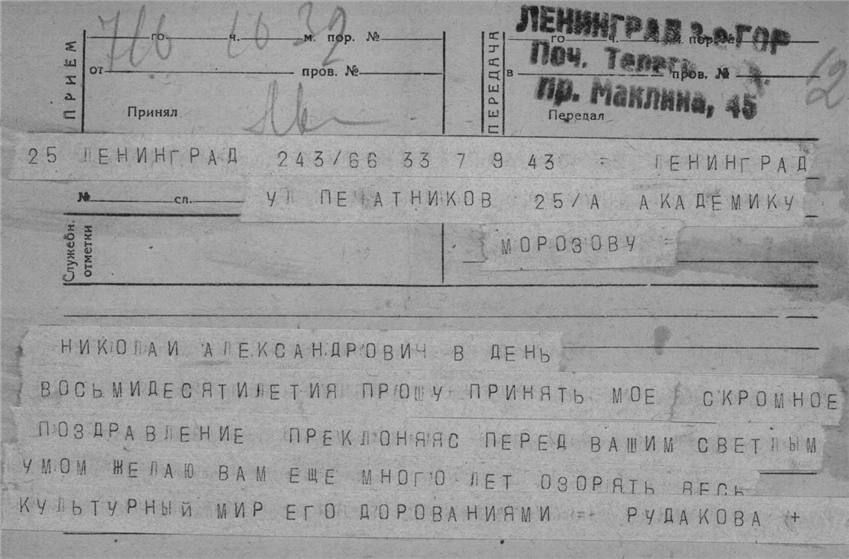 ПРИЕМ
7/6 го 10 ч. 32 м. пор. №
от пров. №
Принял
ПЕРЕДАЧА
го ч. м. пор. №
в пров. №
Передал
ЛЕНИНГРАД 3-е ГОР
Поч. Телегр
пр. Маклина, 45
12
25 ЛЕНИНГРАД 243/66 33 7 9 43 = ЛЕНИНГРАД
№ сл. УЛ ПЕЧАТНИКОВ 25/А АКАДЕМИКУ
Служебн. отметки
МОРОЗОВУ =
НИКОЛАИ АЛЕКСАНДРОВИЧ В ДЕНЬ
ВОСЬМИДЕСЯТИЛЕТИЯ ПРОШУ ПРИНЯТЬ МОЕ СКРОМНОЕ
ПОЗДРАВЛЕНИЕ ПРЕКЛОНЯЯС ПЕРЕД ВАШИМ СВЕТЛЫМ
УМОМ ЖЕЛАЮ ВАМ ЕЩЕ МНОГО ЛЕТ ОЗОРЯТЬ ВЕСЬ
КУЛЬТУРНЫЙ МИР ЕГО ДОРОВАНИЯМИ = РУДАКОВА +